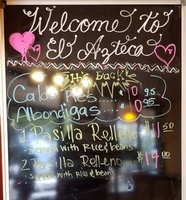 Welcome to
El Azteca
It's back!
Caldo Res
Albondigas
1 Pasilla Relleno
Served with Rice & beans
2 Pasilla Relleno
Served with Rice & beans